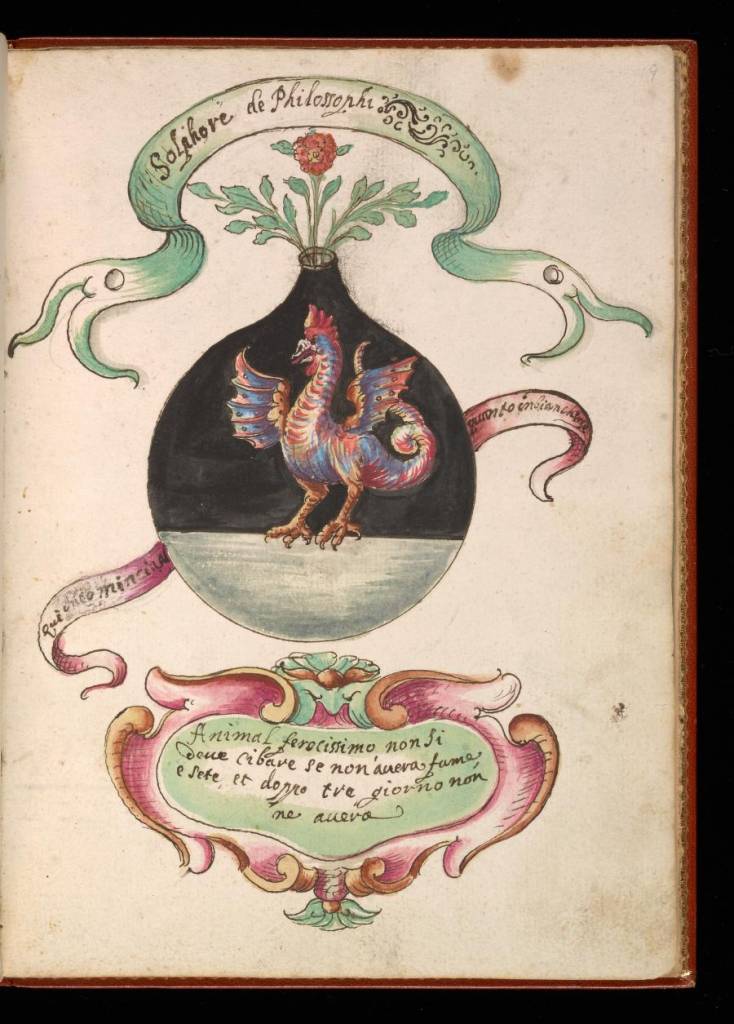 Solphore de Philosophi
quanto in bianchise
qui incominciaò
Animal ferocissimo non si
deue cibare se non auera fame,
e sete, et doppo tre giorno non
ne auera
9